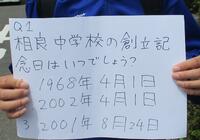 Q1
相良中学校の創立記
念日はいつでしょう?
1968年4月1日
2002年4月1日
3 2001年8月24日